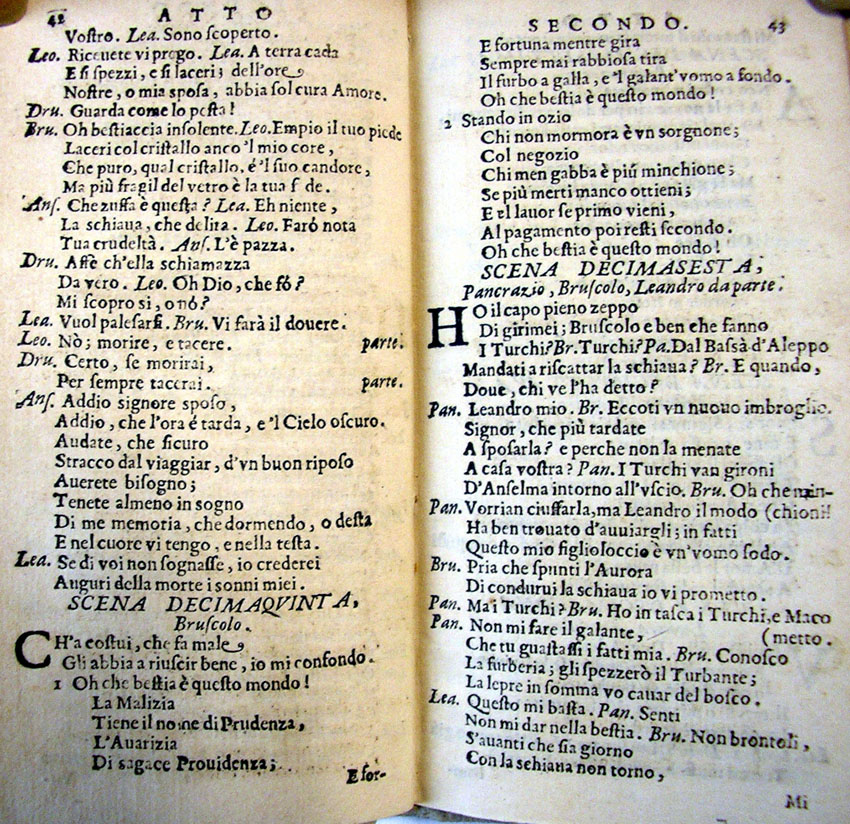 42 ATTO
Vostro. Lea. Sono scoperto.
Leo. Riceuete vi prego. Lea. A terra cada
E si spezzi, e si laceri; dell'ore
Nostre, o mia sposa, abbia sol cura Amore.
Dru. Guarda come lo pesta!
Bru. Oh bestiaccia insolente. Leo. Empio il tuo piede
Laceri col cristallo anco 'l mio core,
Che puro, qual cristallo, é 'l suo candore,
Ma più fragil del vetro è la tua f de.
Ans. Che zuffa è questa? Lea. Eh niente,
La schiaua, che delira. Leo. Faró nota
Tua crudeltà. Ans. L'è pazza.
Dru. Affè ch'ella schiamazza
Da vero. Leo. Oh Dio, che fó?
Mi scopro si, o nó?
Lea. Vuol palesarsi. Bru. Vi farà il douere.
Leo. Nò; morire, e tacere. parte.
Dru. Certo, se morirai,
Per sempre tacerai. parte.
Ans. Addio signore sposo,
Addio, che l'ora é tarda, e 'l Cielo oscuro.
Audate, che sicuro
Stracco dal viaggiar, d'vn buon riposo
Auerete bisogno;
Tenete almeno in sogno
Di me memoria, che dormendo, o desta
E nel cuore vi tengo, e nella testa.
Lea. Se di voi non sognasse, io crederei
Auguri della morte i sonni miei.
SCENA DECIMAQVINTA,
Bruscolo.
CH'a costui, che fa male
Gli abbia a riuscir bene, io mi confondo.
1 Oh che bestia è questo mondo!
La Malizia
Tiene il nome di Prudenza,
L'Auarizia
Di sagace Prouidenza;
E for-
SECONDO. 43
E fortuna mentre gira
Sempre mai rabbiosa tira
Il furbo a galla, e 'l galant'vomo a fondo.
Oh che bestia è questo mondo!
2 Stando in ozio
Chi non mormora è vn sorgnone;
Col negozio
Chi men gabba è piú minchione;
Se più merti manco ottieni;
E el lauor se primo vieni,
Al pagamento poi resti secondo.
Oh che bestia è questo mondo!
SCENA DECIMASESTA,
Pancrazio, Bruscolo, Leandro da parte.
HO il capo pieno zeppo
Di girimei; Bruscolo e ben che fanno
I Turchi? Br. Turchi? Pa. Dal Bassà d'Aleppo
Mandati a riscattar la schiaua? Br. E quando,
Doue, chi ve l'ha detto?
Pan. Leandro mio. Br. Eccoti vn nuouo imbroglio.
Signor, che più tardate
A sposarla? e perche non la menate
A casa vostra? Pan. I Turchi van gironi
D'Anselma intorno all'vscio. Bru. Oh che min-
Pan. Vorrian ciuffarla, ma Leandro il modo (chioni!
Ha ben trouato d'auuiargli; in fatti
Questo mio figlioloccio è vn'vomo sodo.
Bru. Pria che spunti l'Aurora
Di condurui la schiaua io vi prometto.
Pan. Ma i Turchi? Bru. Ho in tasca i Turchi, e Maco
Pan. Non mi fare il galante, (metto.
Che tu guastassi i fatti mia. Bru. Conosco
La furberia; gli spezzerò il Turbante;
La lepre in somma vo cauar del bosco.
Lea. Questo mi basta. Pan. Senti
Non mi dar nella bestia. Bru. Non brontoli,
S'auanti che sia giorno
Con la schiaua non torno,
Mi